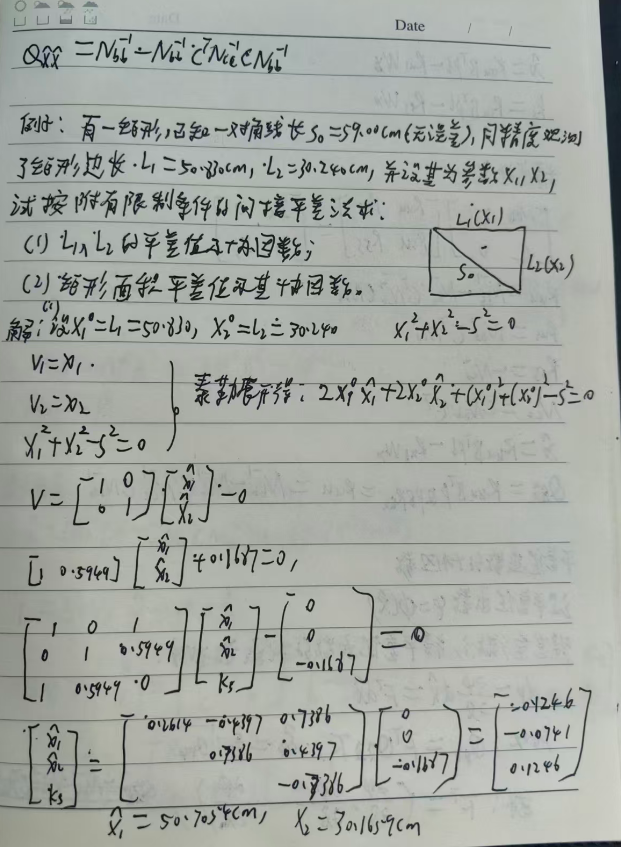 Date / /
Qx̂x̂ = Nbb⁻¹ - Nbb⁻¹ Cᵀ Ncc⁻¹ C Nbb⁻¹
例: 有一矩形,已知一对角线长 S₀=59.00cm(无误差),同精度观测
了矩形边长 L₁=50.830cm, L₂=30.240cm, 并设其为参数X₁,X₂,
试按附有限制条件的间接平差法求:
L₁(X₁)
(1) L₁、L₂的平差值及协因数;
S₀
L₂(X₂)
(2) 矩形面积平差值及其协因数。
解: (1) 设X₁⁰=L₁=50.830, X₂⁰=L₂=30.240 X₁²+X₂²-S²=0
V₁=x̂₁
V₂=x̂₂
X₁²+X₂²-S²=0
泰勒展开得: 2X₁⁰x̂₁+2X₂⁰x̂₂+(X₁⁰)²+(X₂⁰)²-S²=0
V=[1 0; 0 1][x̂₁; x̂₂]-0
[1 0.5949][x̂₁; x̂₂]+0.1687=0,
[1 0 1; 0 1 0.5949; 1 0.5949 0][x̂₁; x̂₂; ks]-[0; 0; -0.1687]=0
[x̂₁; x̂₂; ks]=[0.2614 -0.4397 0.7386; 0.7386 0.4397; -0.7386][0; 0; -0.1687]=[-0.1246; -0.0741; 0.1246]
X̂₁=50.7054cm, X₂=30.1659cm